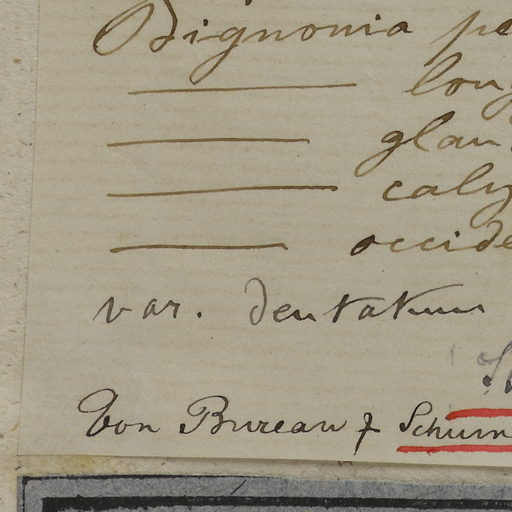 Bignonia pe
——— long
——— glau
——— caly
——— occide
var. dentatum
Von Bureau & Schum